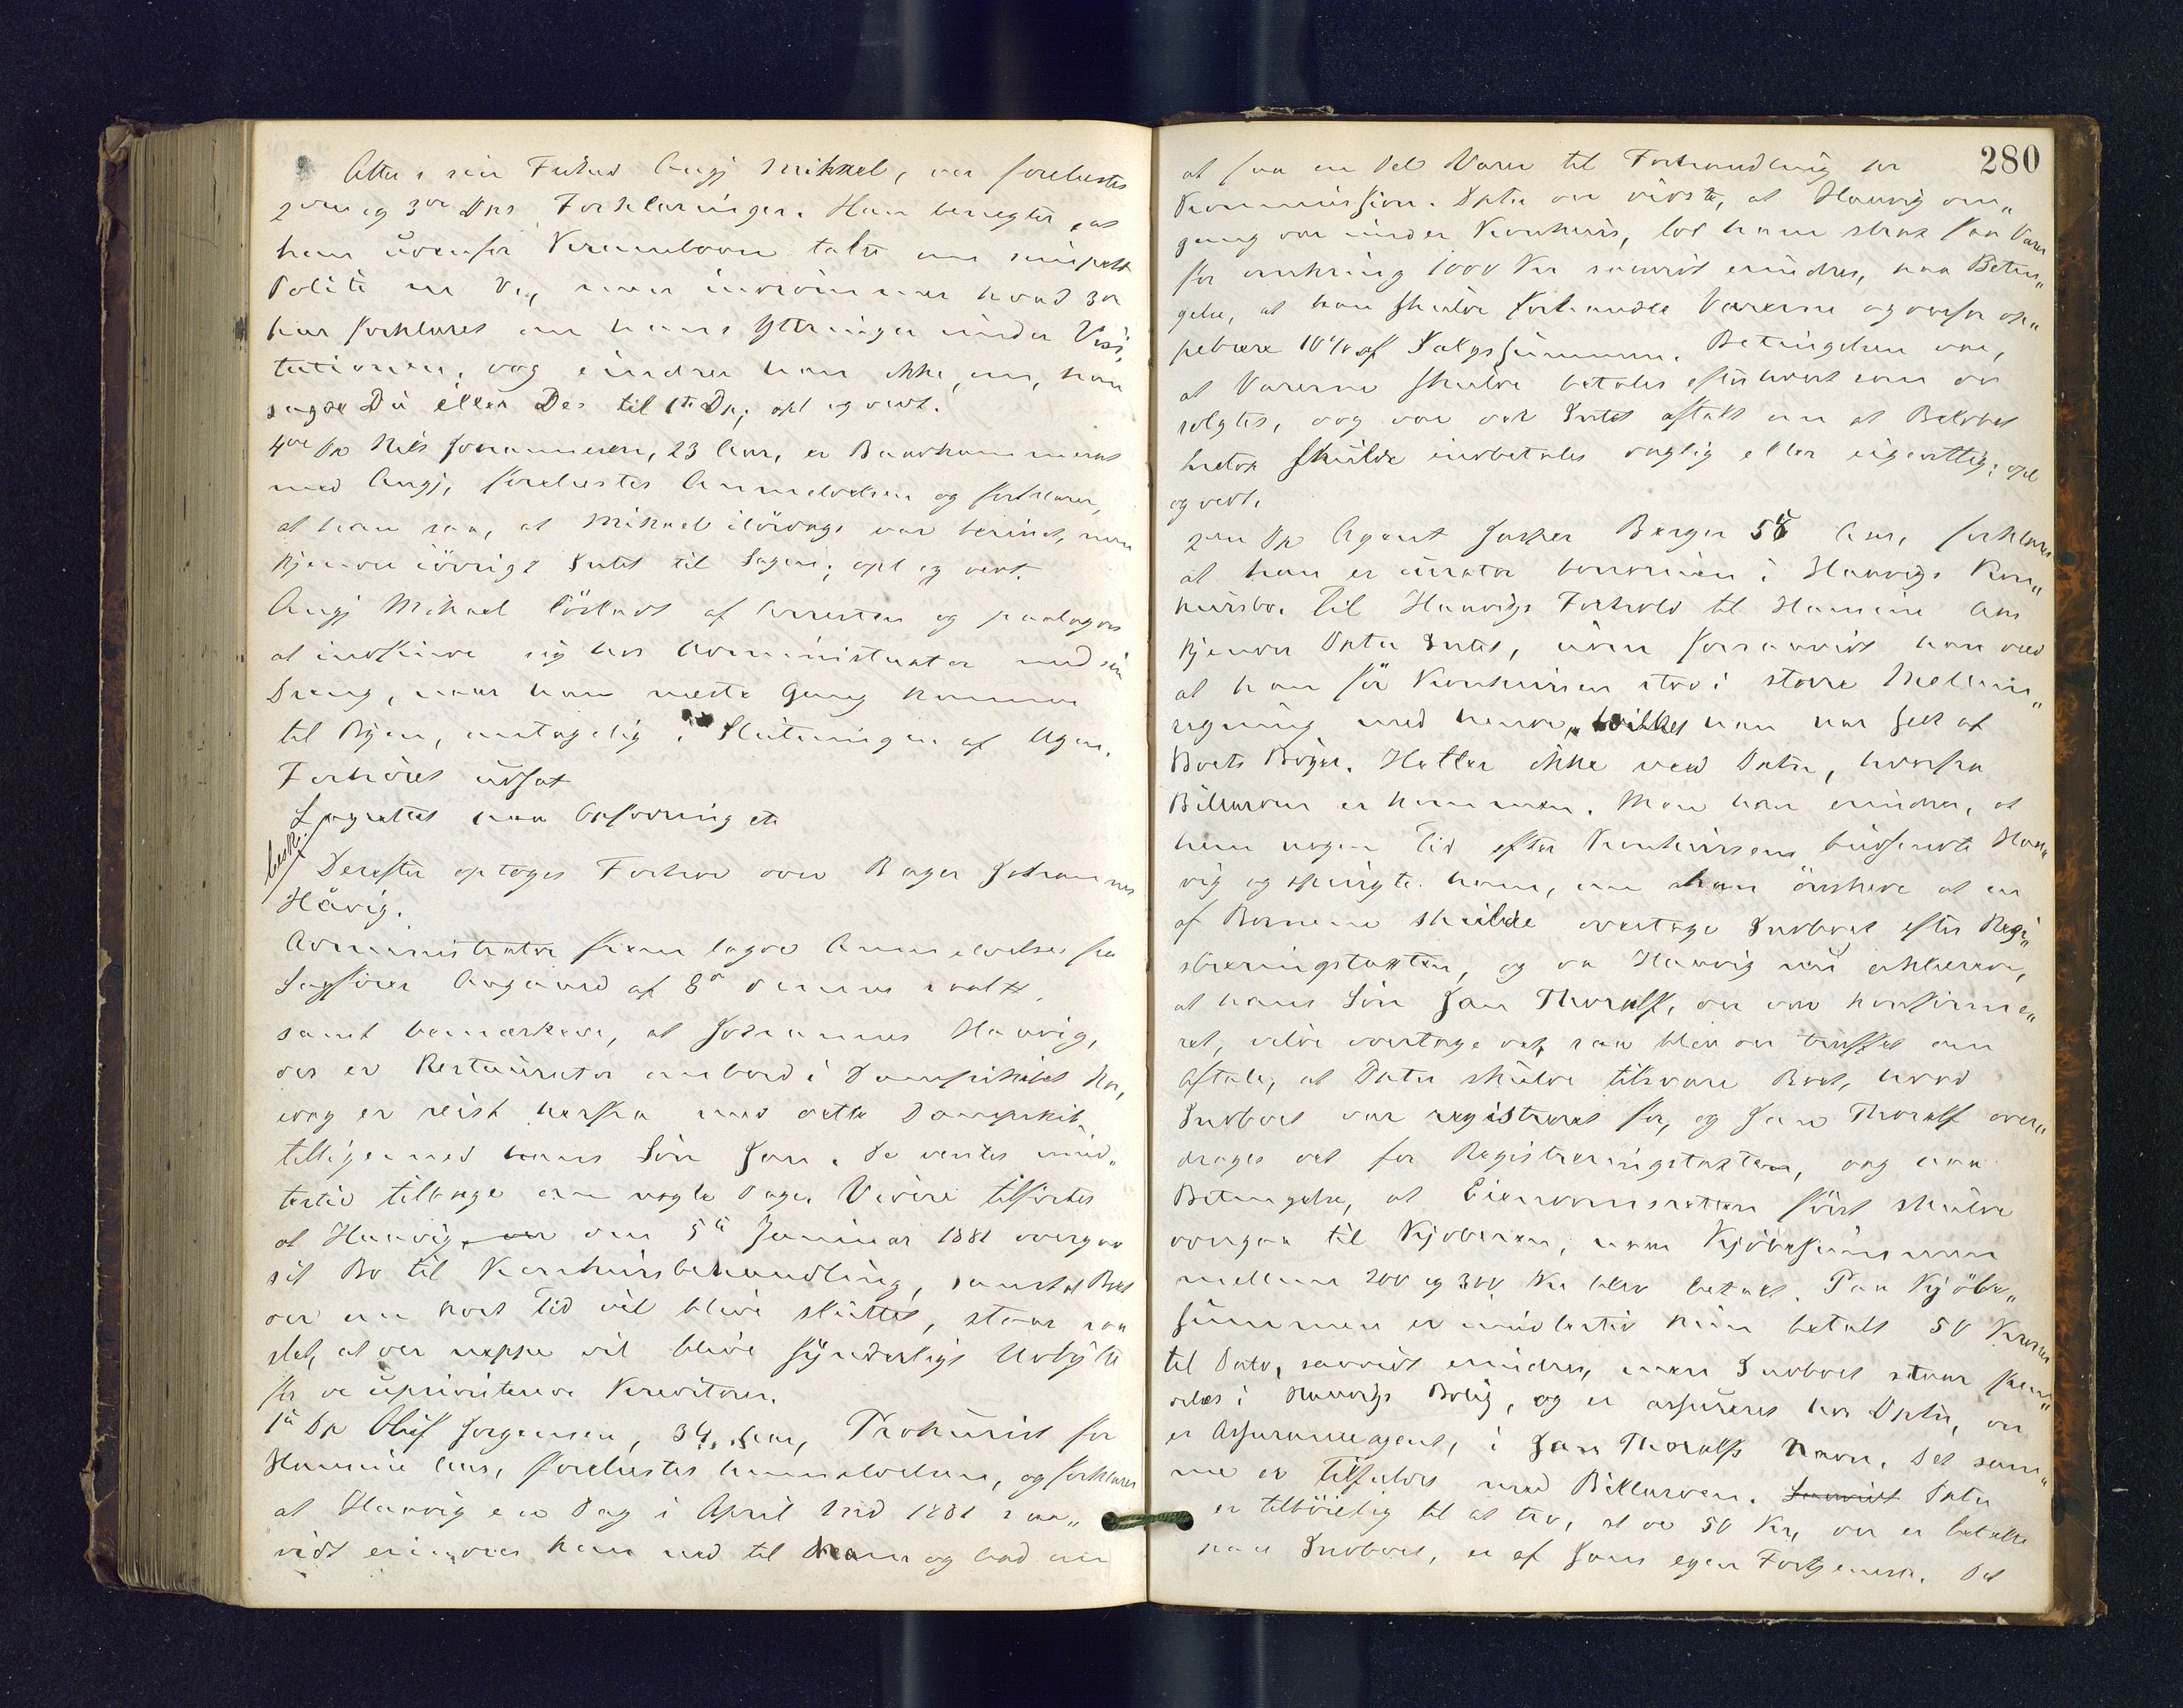 Atter i sin Frihed Angj Mikael, der forelæstes
2den og 3die Dps Forklaringer. Han benegter, at
han udenfor Kramboden talte om simpelt
Politi m V., men indrömmer hvad 3die
har forklaret om hans Yttringer under Visi„
tationen, dog erindrer han ikke, om han
sagde Du eller De til 1ste Dp; opl og vedt.
4de Dp Nils Johannesen, 23 Aar, er Baadkammerat
med Angj, forelæstes Anmeldelsen og forklarer,
at han saa, at Mikael ilördags var beruset, men
kjender iövrigt Intet til Sagen; opl og vedt.
Angj Mikael löslodt af Arresten og paalagdes
at indfinde sig hos Administrator med sin
Dreng, naar han næste Gang kommer
til Byen, antagelig i Slutningen af Ugen.
Forhöret udsat
Lagrettet paa Opfordring etc
besk.
Derefter optoges Forhör over Bager Johannes
Håvig.
Administrator fremlagde Anmeldelse fra
Sagförer Aagaard af 8de dennes saalt,
samt bemærkede, at Johannes Haavig,
der er Restauratör ombord i Dampskibet
idag er reist herfra med dette Dampskib,
tilligemed hans Sön Jan. De ventes imid„
lertid tilbage om nogle Dage. Videre tilförtes
at Haavig, den 5te Januar 1881 overgav
sit Bo til Konkursbehandling, samt at Boet
der om kort Tid vil blive sluttet, staar saa
slet, at der neppe vil blive synderligt Udbytte
for de uprioriterede Kreditorer.
1ste Dp Oluf Jorgensen, 34 Aar, Prokurist for
Hanine Aas, forelæstes Anmeldelsen, og forklarer
at Haavig en Dag i April Md 1881 saa„
vidt erindres kom ned til ham og bad om
280
at faa en Del Varer til Forhandling pr
Kommission. Dptn der vidste, at Haavig den„
gang var under Konkurs, lod ham strax faa Varer
for omkring 1000 Kr saavidt erindres, paa Betin„
gelse, at han skulde forhandle Varerne og derfor op„
pebære 10% af Salgssummen. Betingelsen var,
at Varerne skulde betales efterhvert som de
solgtes, dog var der Intet aftalt om at Beløbet
herfor skulde indbetales daglig eller ugentlig; opl
og vedt.
2den Dp Agent Jasper Berger 58 Aar, forklarer
at han er curator bonorum i Haavigs Kon„
kursbo. Til Haavigs Forhold til Hanine Aas
kjender Dptn Intet, uden forsaavidt han ved
at han för Konkursen stod i större Mellem„
regning med hende, hvilket han har seet af
Boets Böger. Heller ikke ved Dptn, hvorfra
Billarden er kommen. Men han erindrer, at
han nogen Tid efter Konkursens budsendte Haa„
vig og spurgte ham, om han önskede at en
af Bornene skulde overtage Indboet efter Regi„
streringstaxten, og da Haavig nu erklærede,
at hans Sön Jan Thoralf, der var konfirme„
ret, vilde overtage det, saa blev der truffet den
Aftale, at Dptn skulde tilsvare Boet, hvad
Indboet var registreret for, og Jan Thoralf over„
drages det for Registreringstaxten, dog paa
Betingelse, at Eiendomsretten först skulde
overgaa til Kjoberen, naar Kjöbesummen
mellem 200 og 300 Kr blev betalt. Paa Kjöbe„
summen er imidlertid kun betalt 50 Kroner
til Dato, saavidt erindres, men Indboet staar frem„
deles i Haavigs Bolig, og er assureret hos Dptn, der
er Assuranceagent, i Jan Thoralfs Navn. Det sam„
me er Tilfældet med Billarden. Saavidt Dptn
er tilböielig til at tro, at de 50 Kr, der er betalte
paa Indboet, er af Jans egen Fortjeneste. Det